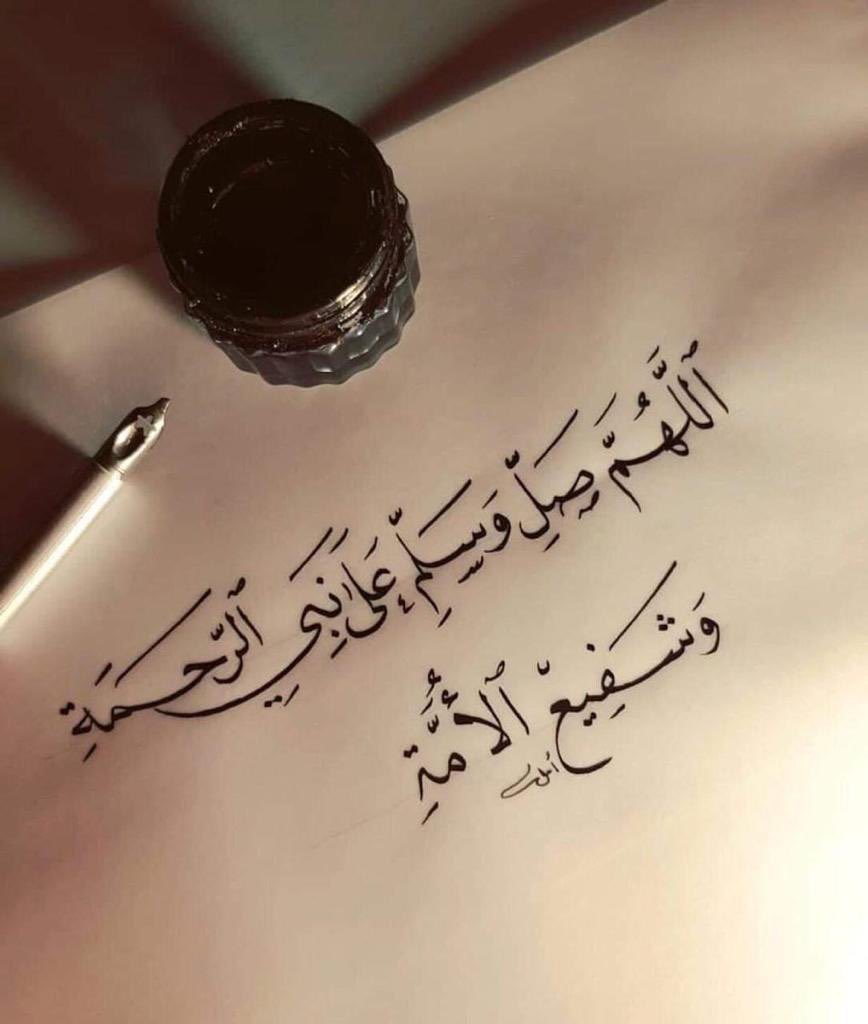 اللَّهُمَّ صَلِّ وَسَلِّمْ عَلَىٰ نَبِيِّ الرَّحْمَةِ
وَشَفِيعِ الْأُمَّةِ